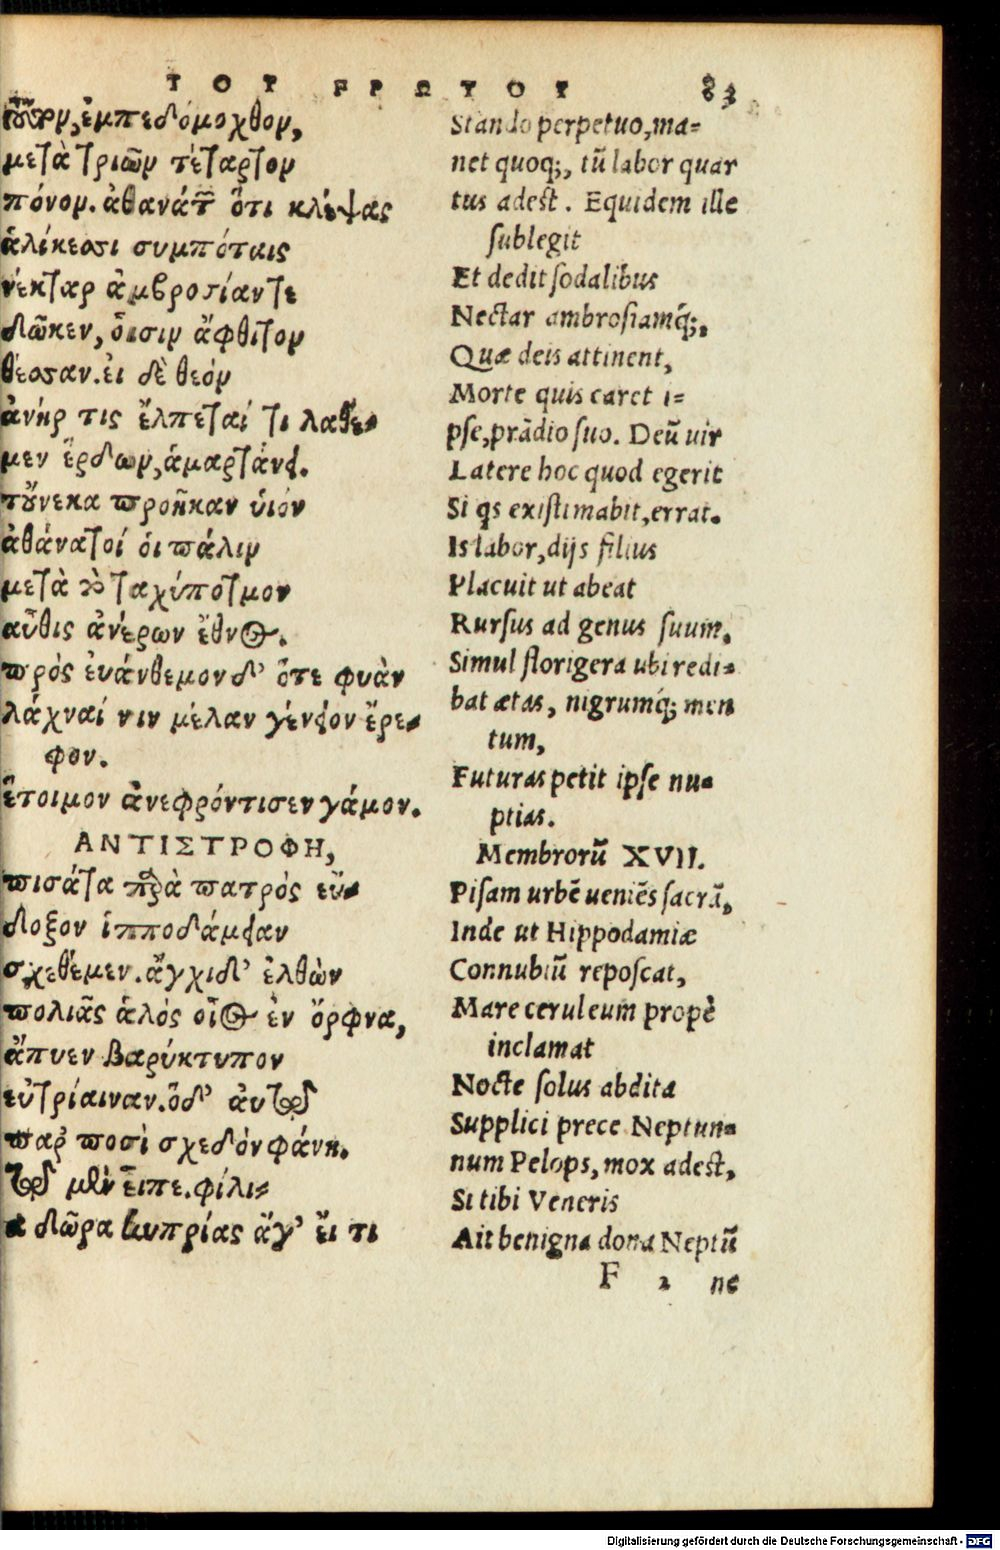 ΤΟΥ ΕΡΩΤΟΥ 83
τοῦτον, ἐμπεδόμοχθον,
μετὰ τριῶν τέταρτον
πόνον. ἀθανάτων ὅτι κλέψας
ἁλίκεσσι συμπόταις
νέκταρ ἀμβροσίαν τε
δῶκεν, οἷσιν ἄφθιτον
θέσσαν. εἰ δὲ θεὸν
ἀνήρ τις ἔλπεταί τι λαθέ-
μεν ἔρδων, ἁμαρτάνει.
τοὔνεκα προῆκαν υἱὸν
ἀθάνατοί οἱ πάλιν
μετὰ τὸ ταχύποτμον
αὖθις ἀνέρων ἔθνος.
πρὸς εὐάνθεμον δ' ὅτε φυὰν
λάχναί νιν μέλαν γένειον ἔρε-
φον.
ἕτοιμον ἀνεφρόντισεν γάμον.
ΑΝΤΙΣΤΡΟΦΗ,
πισάτα παρὰ πατρὸς εὔ-
δοξον ἱπποδάμειαν
σχεθέμεν. ἄγχι δ' ἐλθὼν
πολιᾶς ἁλὸς οἶος ἐν ὄρφνα,
ἄπυεν βαρύκτυπον
εὐτρίαιναν. ὅδ' αὐτῷ
παρ ποσὶ σχεδὸν φάνη.
τῷ μὲν εἶπε. φίλι-
α δῶρα κυπρίας ἄγ' εἴ τι
Stando perpetuo, ma-
net quoq;, tũ labor quar
tus adest. Equidem ille
sublegit
Et dedit sodalibus
Nectar ambrosiamq́;,
Quæ deis attinent,
Morte quis caret i-
pse, prãdio suo. Deũ uir
Latere hoc quod egerit
Si qs existimabit, errat.
Is labor, dijs filius
Placuit ut abeat
Rursus ad genus suum.
Simul florigera ubi redi-
bat ætas, nigrumq́; men
tum,
Futuras petit ipse nu-
ptias.
Membrorũ XVII.
Pisam urbẽ ueniẽs sacrã,
Inde ut Hippodamiæ
Connubiũ reposcat,
Mare ceruleum propè
inclamat
Nocte solus abdita
Supplici prece Neptun-
num Pelops, mox adest,
Si tibi Veneris
Ait benigna dona Neptũ
F 2 ne
Digitalisierung gefördert durch die Deutsche Forschungsgemeinschaft - DFG